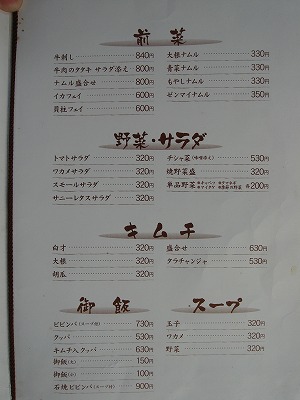 前菜
牛刺し 840円
牛肉のタタキ サラダ添え 800円
ナムル盛合せ 800円
イカフェイ 600円
貝柱フェイ 600円
大根ナムル 330円
青菜ナムル 330円
もやしナムル 330円
ゼンマイナムル 350円
野菜・サラダ
トマトサラダ 320円
ワカメサラダ 320円
スモールサラダ 320円
サニーレタスサラダ 320円
チシャ菜 530円
焼野菜盛 320円
単品野菜 各200円
キムチ
白才 320円
大根 320円
胡瓜 320円
盛合せ 630円
タラチャンジャ 530円
御飯
ビビンバ(スープ付) 730円
クッパ 530円
キムチ入クッパ 630円
御飯(大) 150円
御飯(小) 100円
石焼ビビンバ(スープ付) 900円
スープ
玉子 320円
ワカメ 320円
野菜 320円